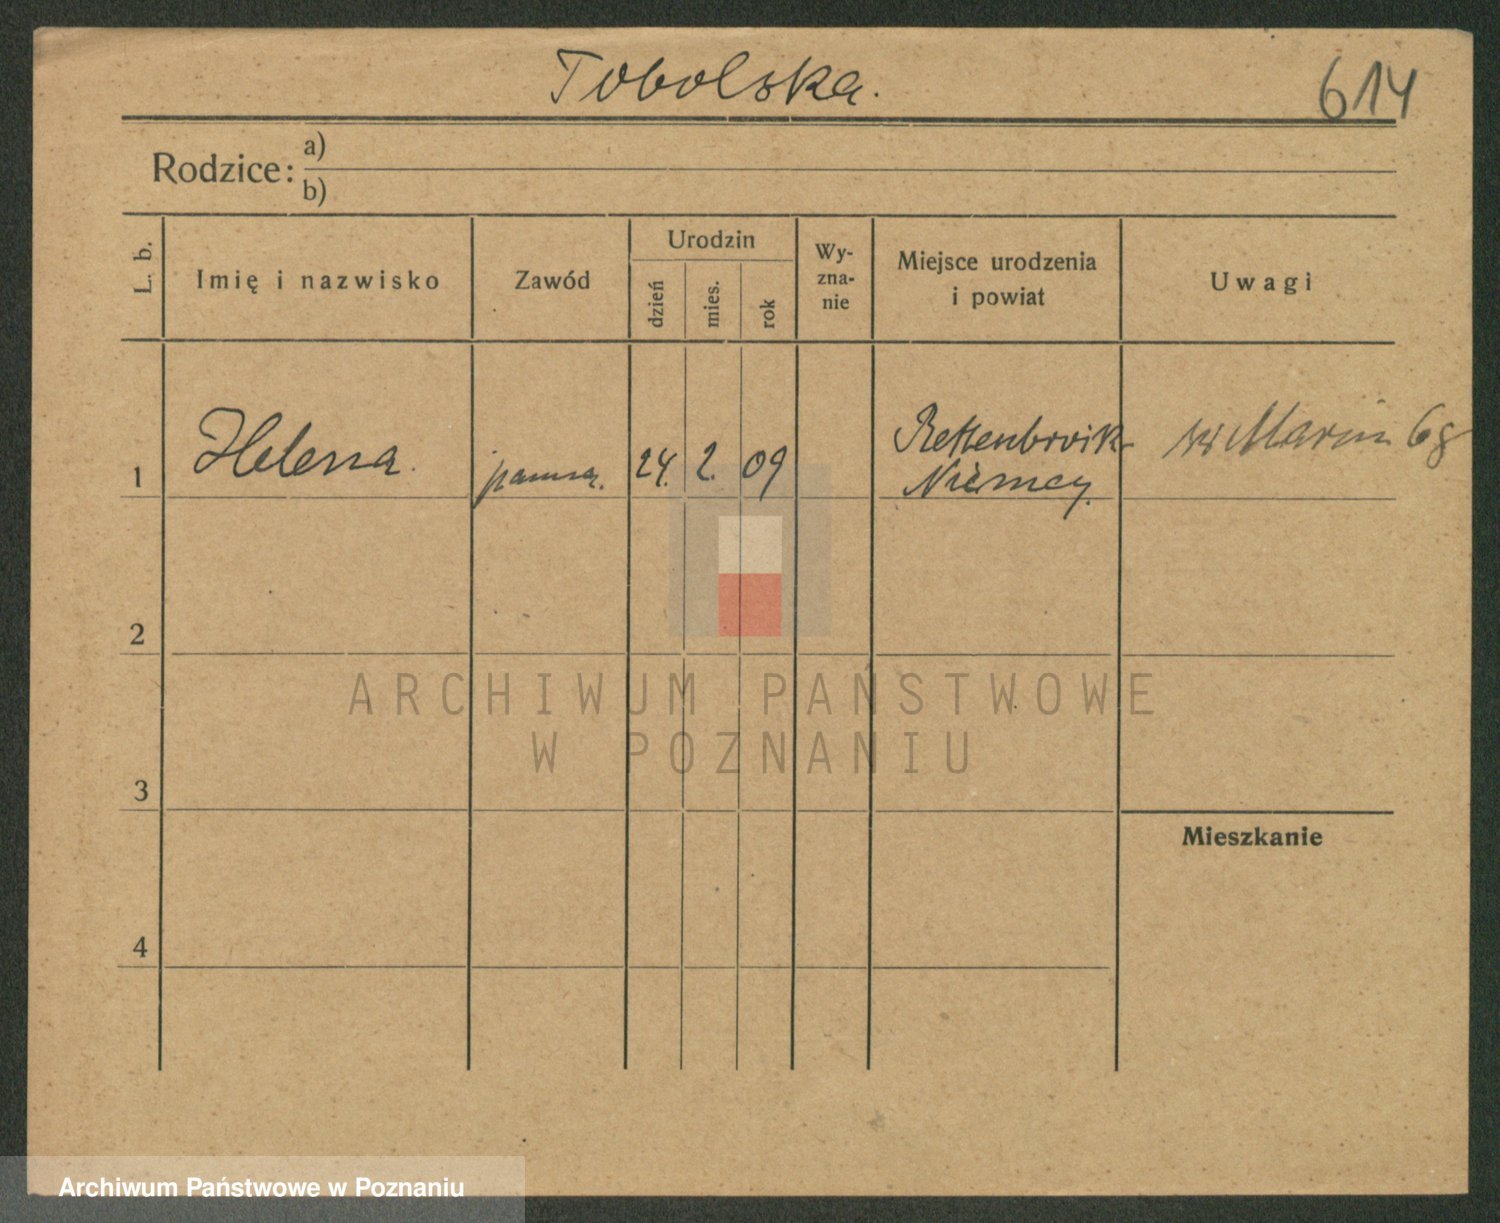 Tobolska.
614
Rodzice:
a)
b)
L. b.
Imię i nazwisko
Zawód
Urodzin
dzień
mies.
rok
Wy-
zna-
nie
Miejsce urodzenia
i powiat
Uwagi
1
Helena.
panna.
24. 2. 09
Niemcy.
2
3
4
Mieszkanie
ARCHIWUM PAŃSTWOWE
W POZNANIU
Archiwum Państwowe w Poznaniu